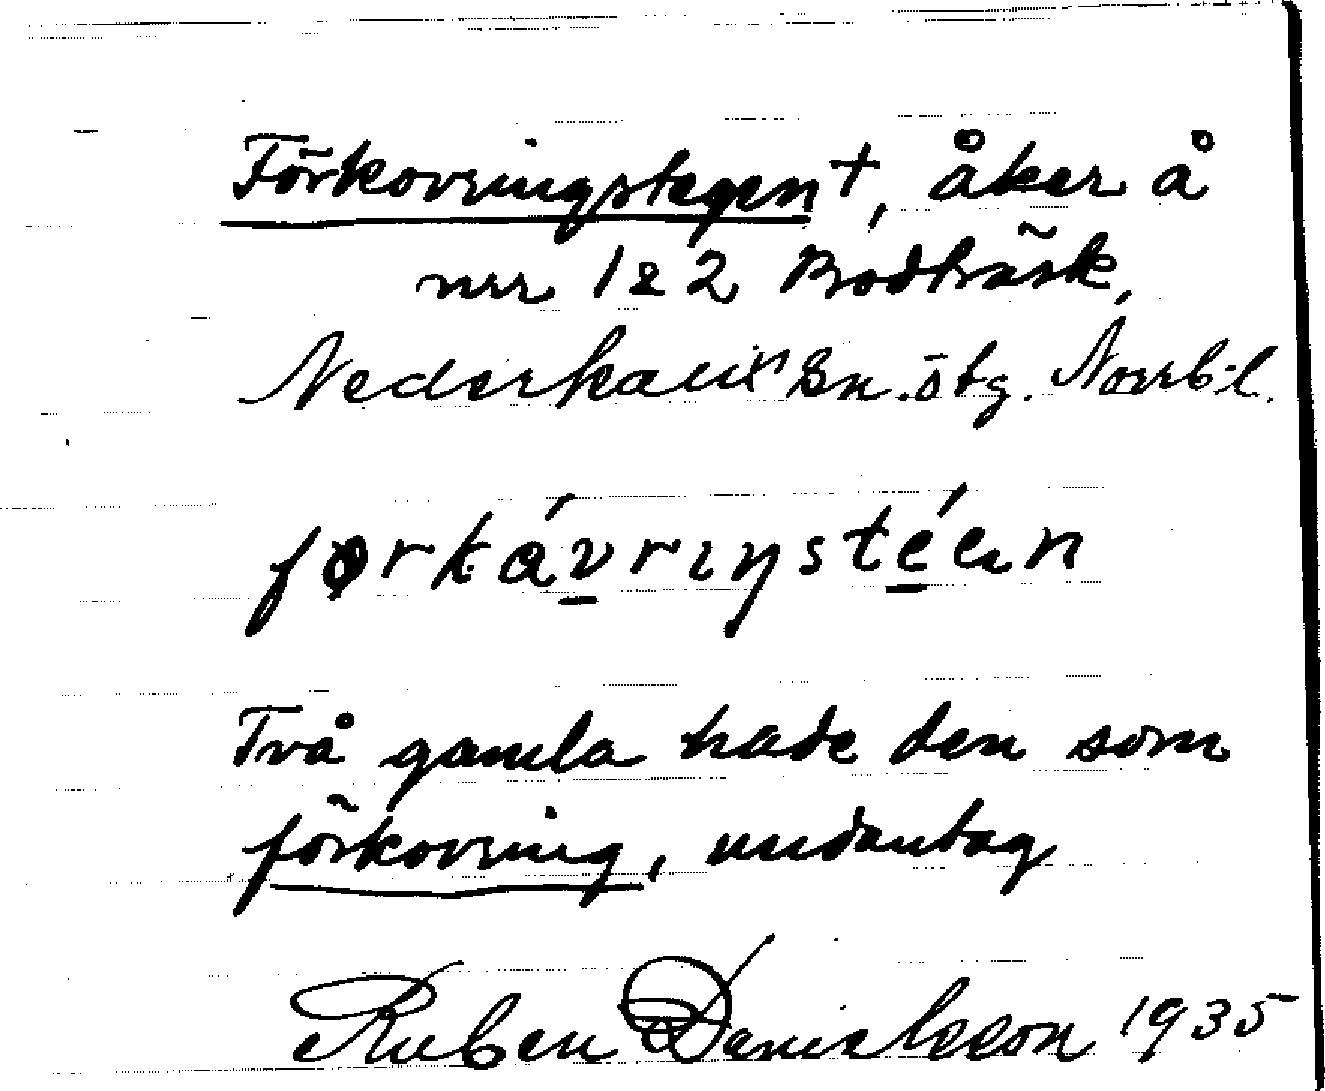 Förkovringstegen†, åker å
nrr 1 & 2 Bodträsk,
Nederkalix sn. öbg. Norrb. l.
førkávrıŋstéen
Två gamla hade den som
förkovring, undantag
Ruben Danielsson 1935